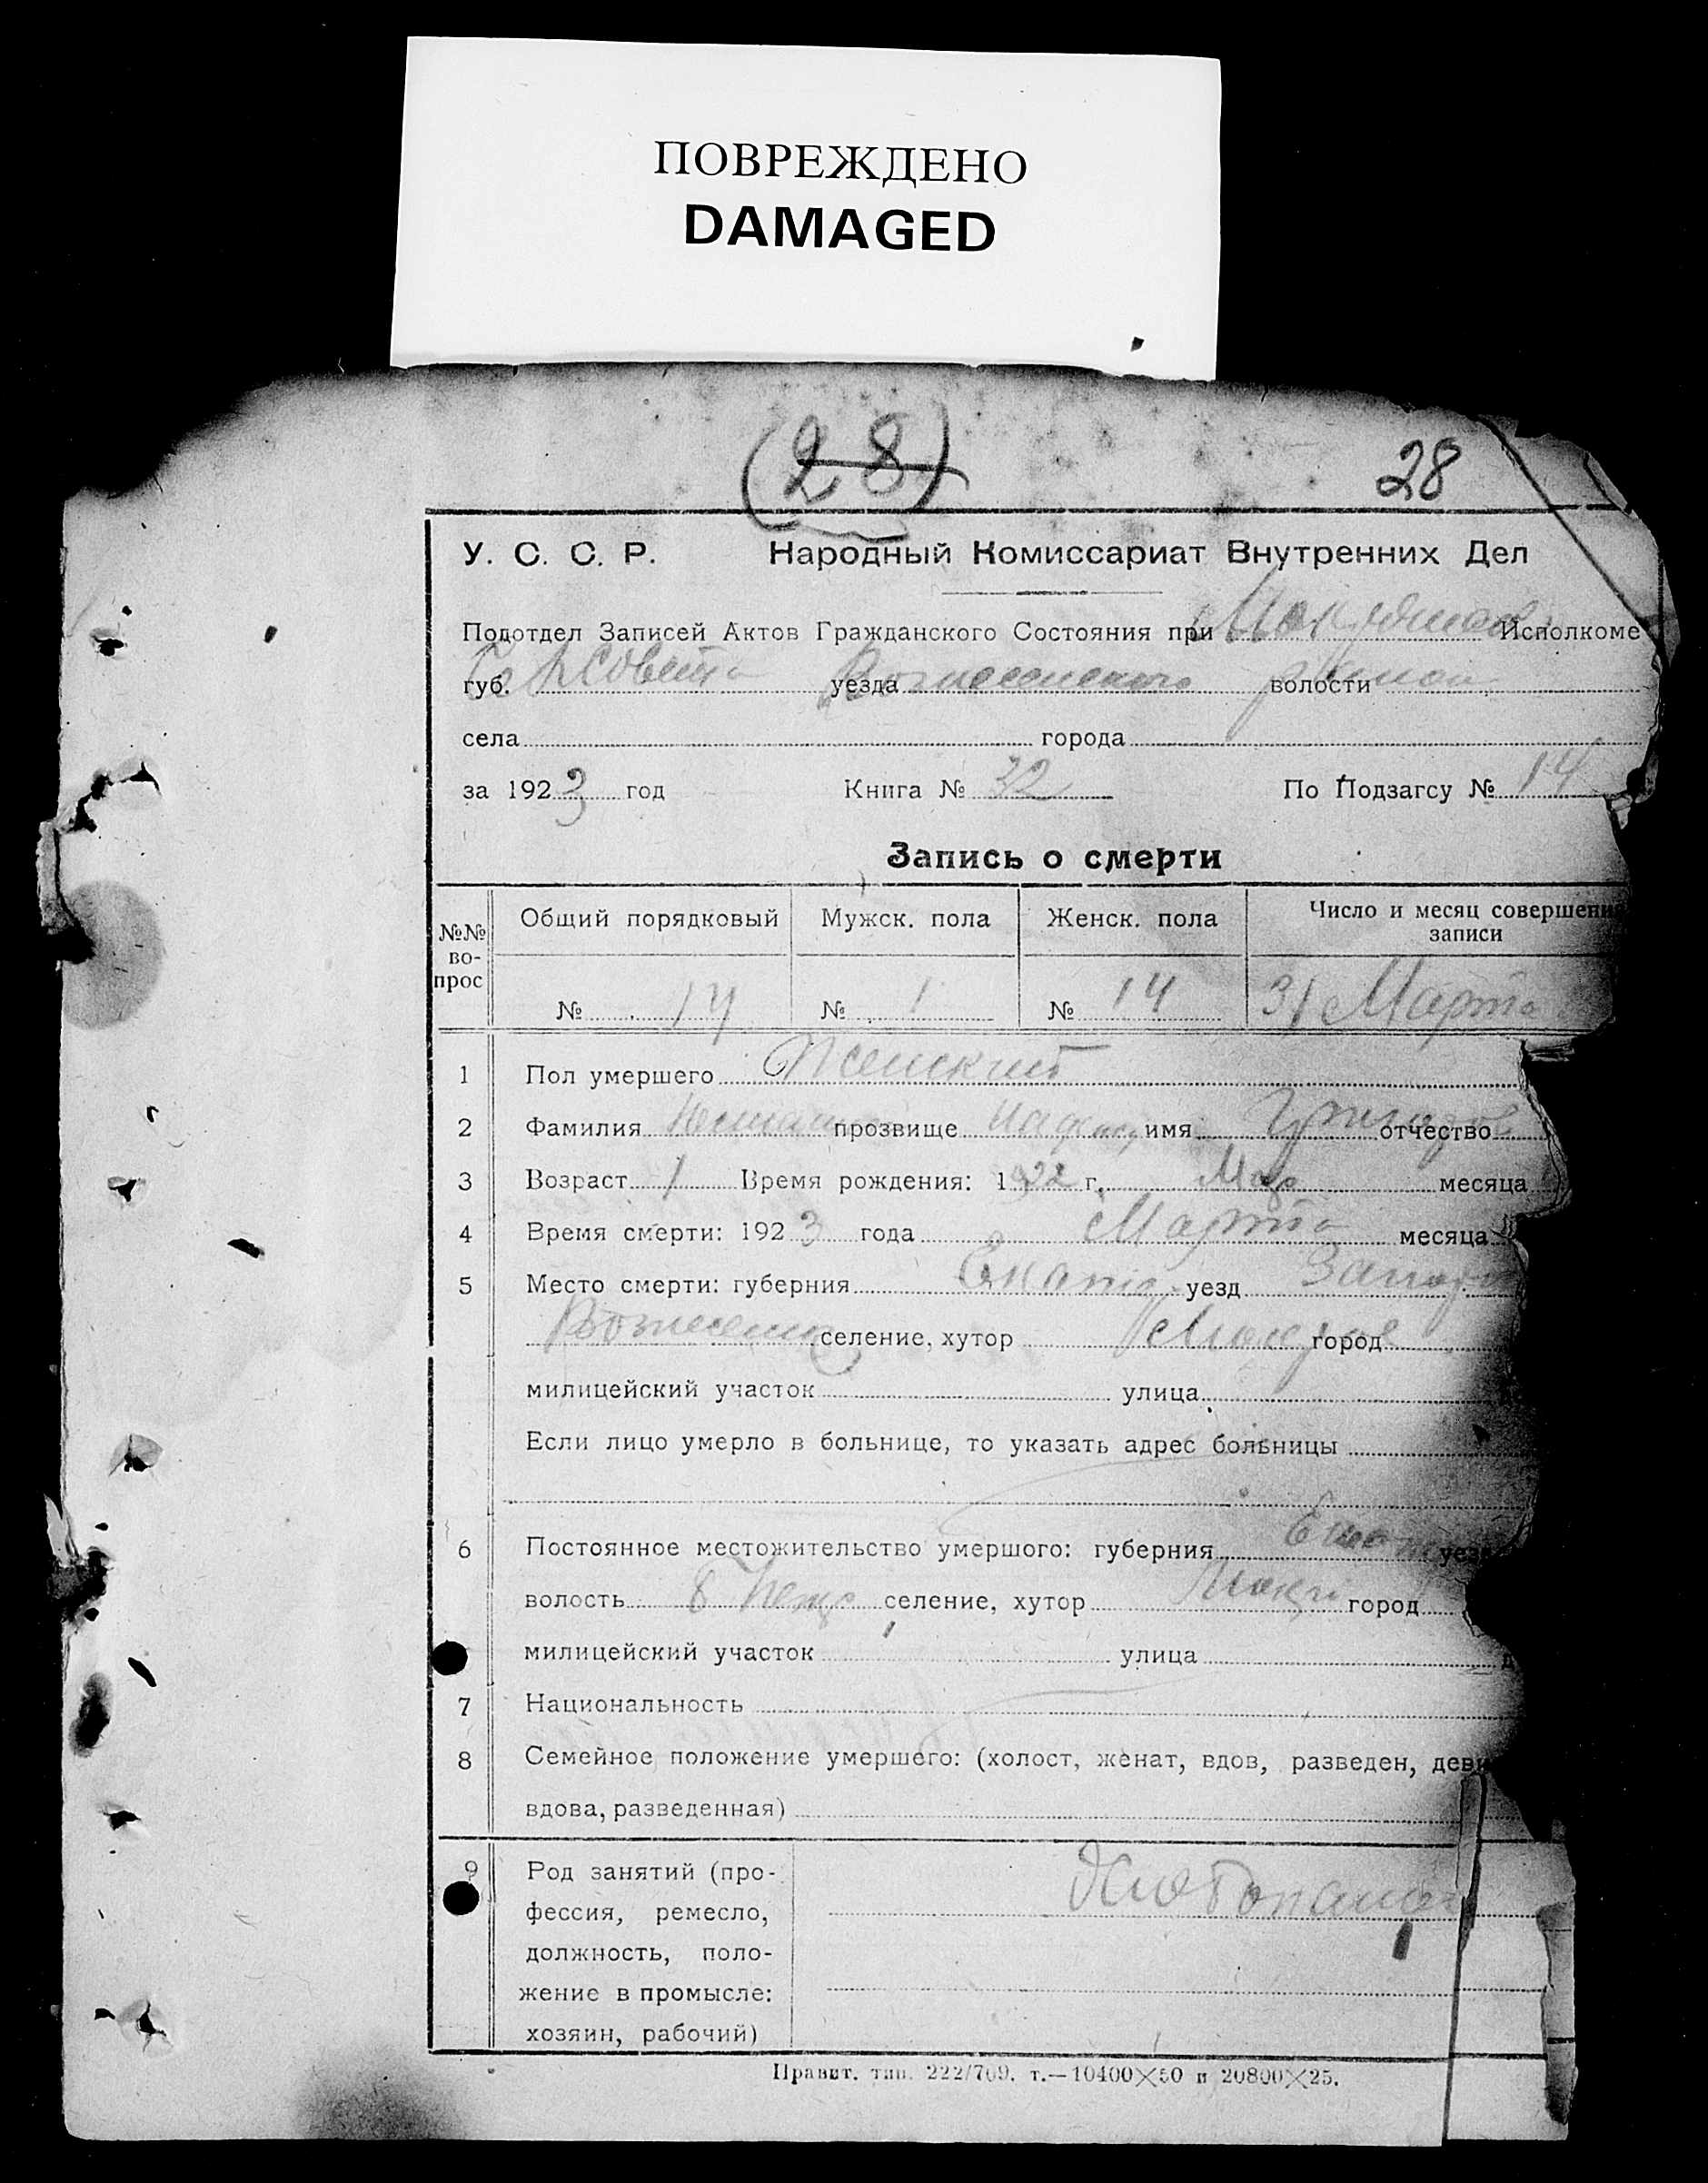 ПОВРЕЖДЕНО
DAMAGED
(28) 28
У. С. С. Р. Народный Комиссариат Внутренних Дел
Подотдел Записей Актов Гражданского Состояния при Исполкоме
губ. уезда Вознесенского волости
села города
за 1923 год Книга № 32 По Подзагсу № 14
Запись о смерти
№№ во-прос Общий порядковый Мужск. пола Женск. пола Число и месяц совершени
записи
№ 14 № 1 № 14 31 Марта
1 Пол умершего Женский
2 Фамилия прозвище имя отчество
3 Возраст 1 Время рождения: 1922 г. месяца
4 Время смерти: 1923 года Марта месяца
5 Место смерти: губерния Екатер уезд Запор
селение, хутор город
милицейский участок улица
Если лицо умерло в больнице, то указать адрес больницы
6 Постоянное местожительство умершого: губерния уез
волость селение, хутор город
милицейский участок улица
7 Национальность
8 Семейное положение умершего: (холост, женат, вдов, разведен, деви
вдова, разведенная)
9 Род занятий (про-
фессия, ремесло,
должность, поло-
жение в промысле:
хозяин, рабочий)
Правит. тип. 222/709. т.—10400×50 и 20800×25.